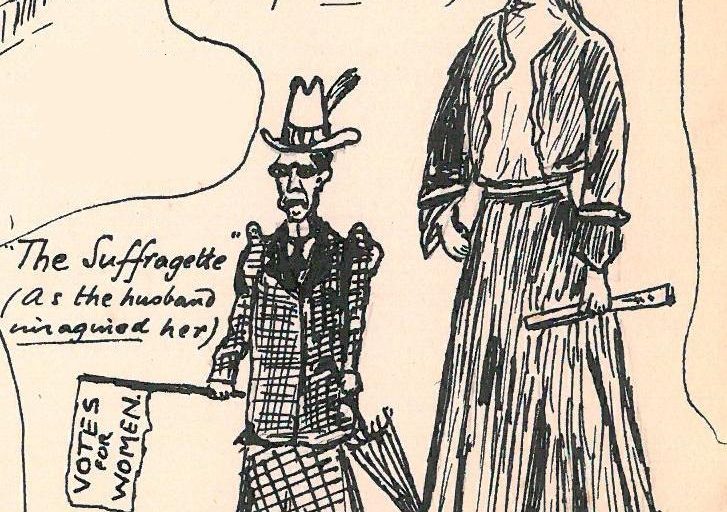 "The Suffragette"
(As the husband
imagined her)
VOTES
FOR
WOMEN.